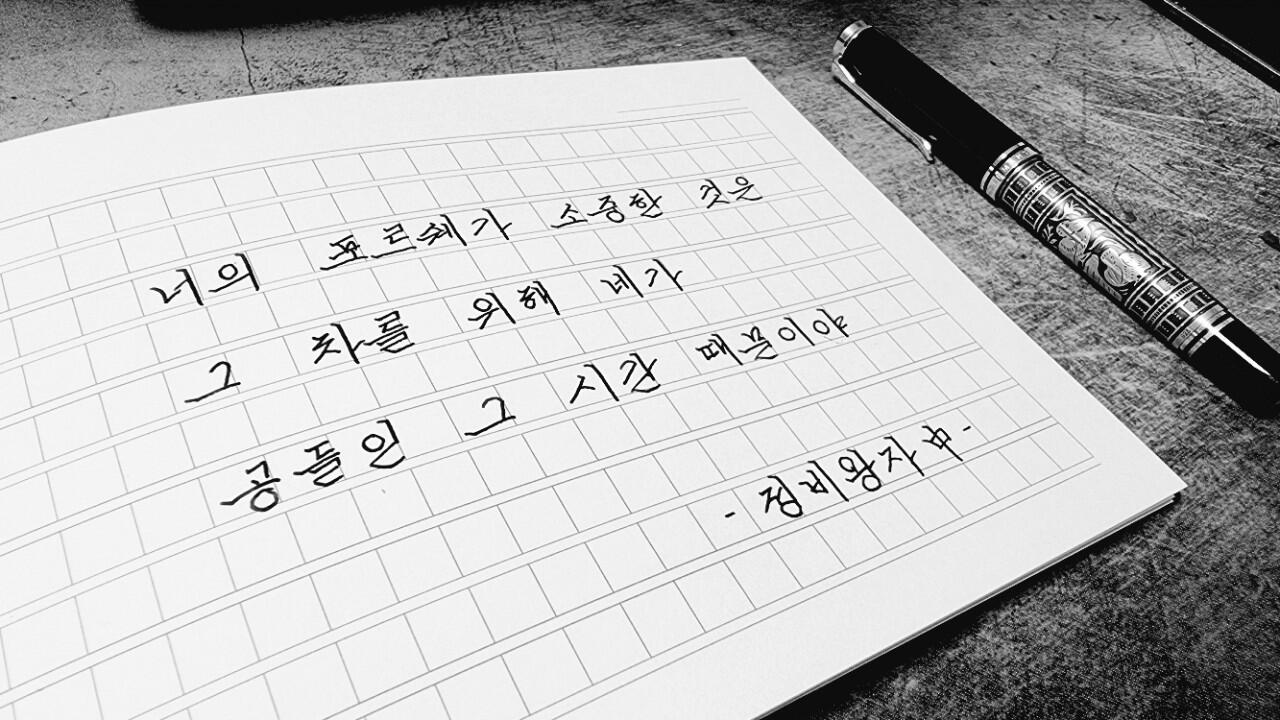 너의 포르쉐가 소중한 것은
그 차를 위해 네가
공들인 그 시간 때문이야
- 정비왕자 中 -